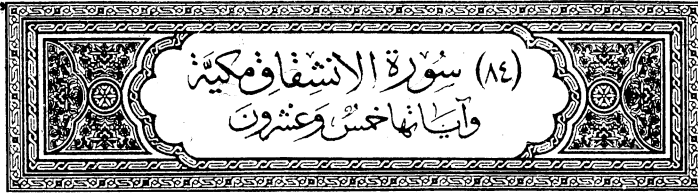 (٨٤) سُورَة الانشِقَاقِ مَكيَّة
وَآيَاتهَا خَمْسٌ وَعشرُونَ